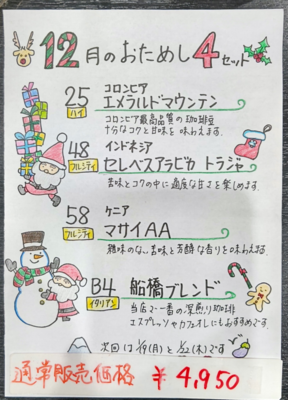 12月のおためし4セット
25 コロンビア
ハイ エメラルドマウンテン
コロンビア最高品質の珈琲豆
十分なコクと甘味を味わえます。
48 インドネシア
フルシティ セレベスアラビカ トラジャ
苦味とコクの中に適度な甘さを楽しめます。
58 ケニア
フルシティ マサイAA
雑味のない苦味と芳醇な香りを味わえる。
B4 船橋ブレンド
イタリアン 当店で一番の深煎り珈琲
エスプレッソやカフェオレにもおすすめです。
次回は (月)と (木)です
通常販売価格 ¥4,950